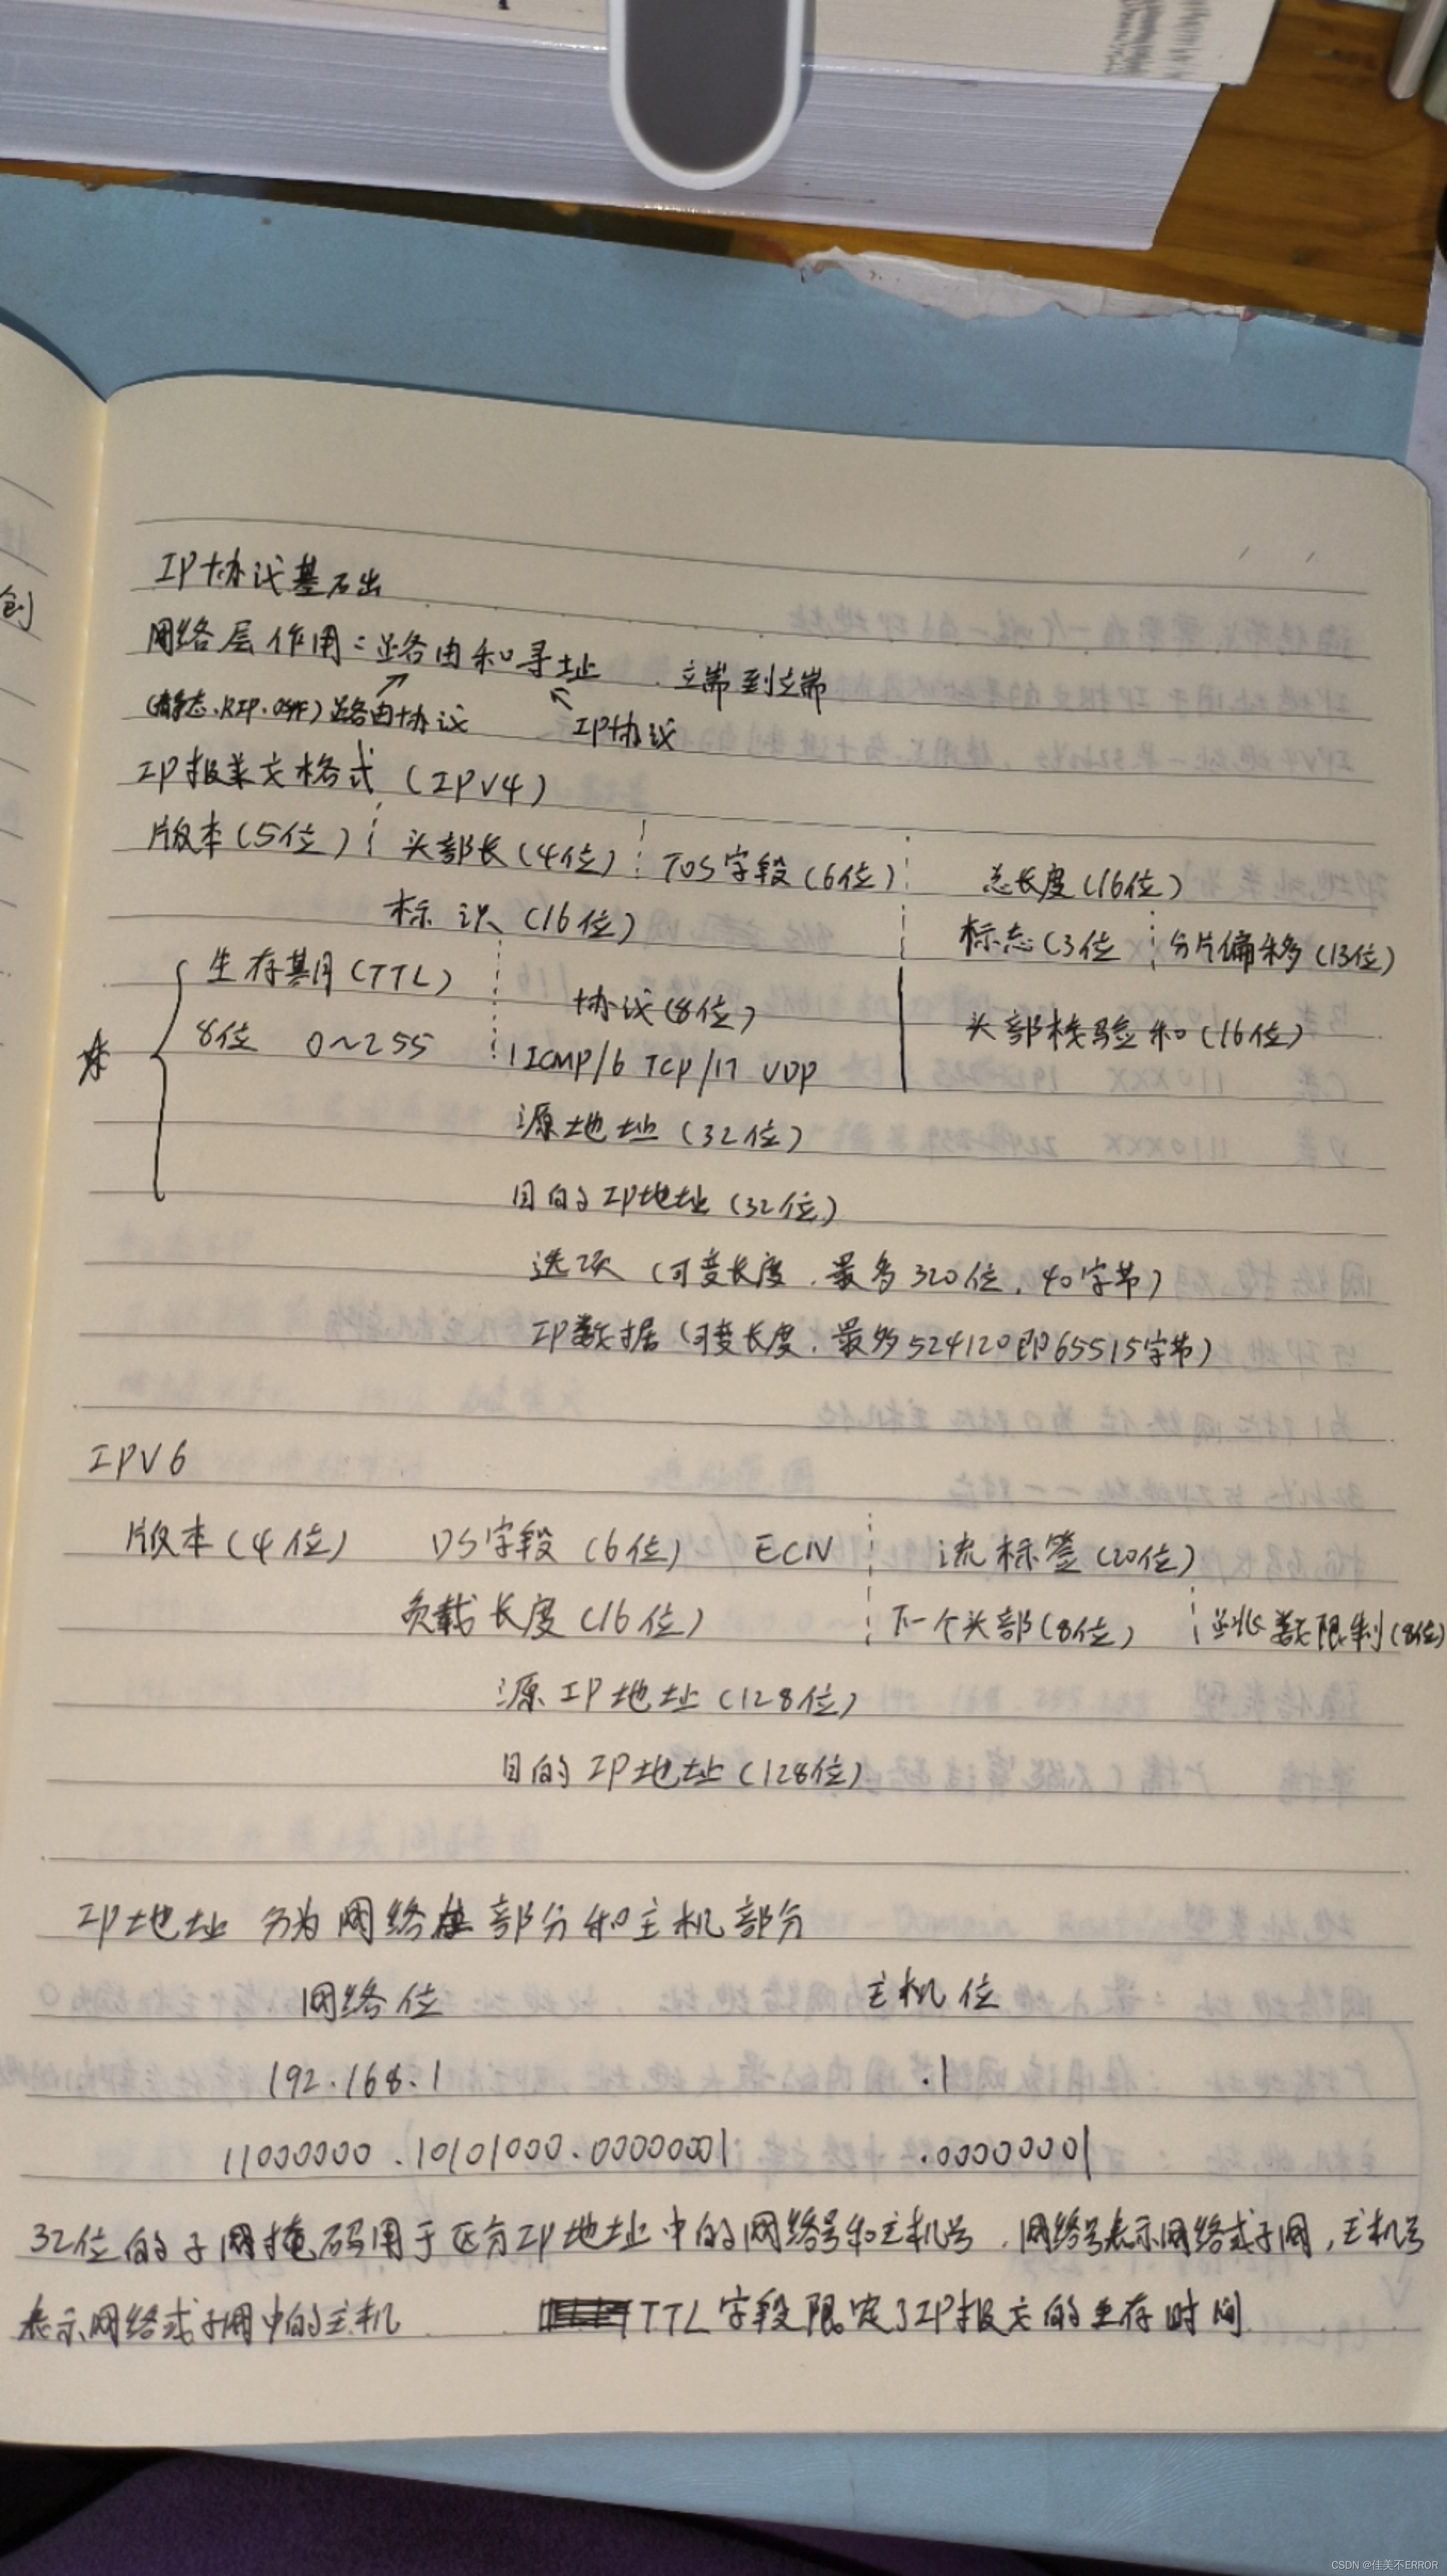 创
IP协议基础
网络层作用：路由和寻址 . 端到端
(静态.RIP.OSPF)路由协议 IP协议
IP报文格式（IPV4）
版本(5位) 头部长(4位) TOS字段(6位) 总长度(16位)
标识(16位) 标志(3位 分片偏移(13位)
生存期(TTL) 协议(8位)
8位 0~255 1 ICMP/6 TCP/17 UDP 头部校验和(16位)
源地址(32位)
目的IP地址(32位)
选项(可变长度.最多320位.40字节)
IP数据(可变长度.最多524120即65515字节)
IPV6
版本(4位) DS字段(6位) ECN 流标签(20位)
负载长度(16位) 下一个头部(8位) 跳数限制(8位)
源IP地址(128位)
目的IP地址(128位)
IP地址 分为网络部分和主机部分
网络位 主机位
192.168.1 .1
11000000.10101000.00000001 .00000001
32位的子网掩码用于区分IP地址中的网络号和主机号.网络号表示网络或子网,主机号
表示网络或子网中的主机 TTL字段限定了IP报文的生存时间
CSDN @佳美不ERROR